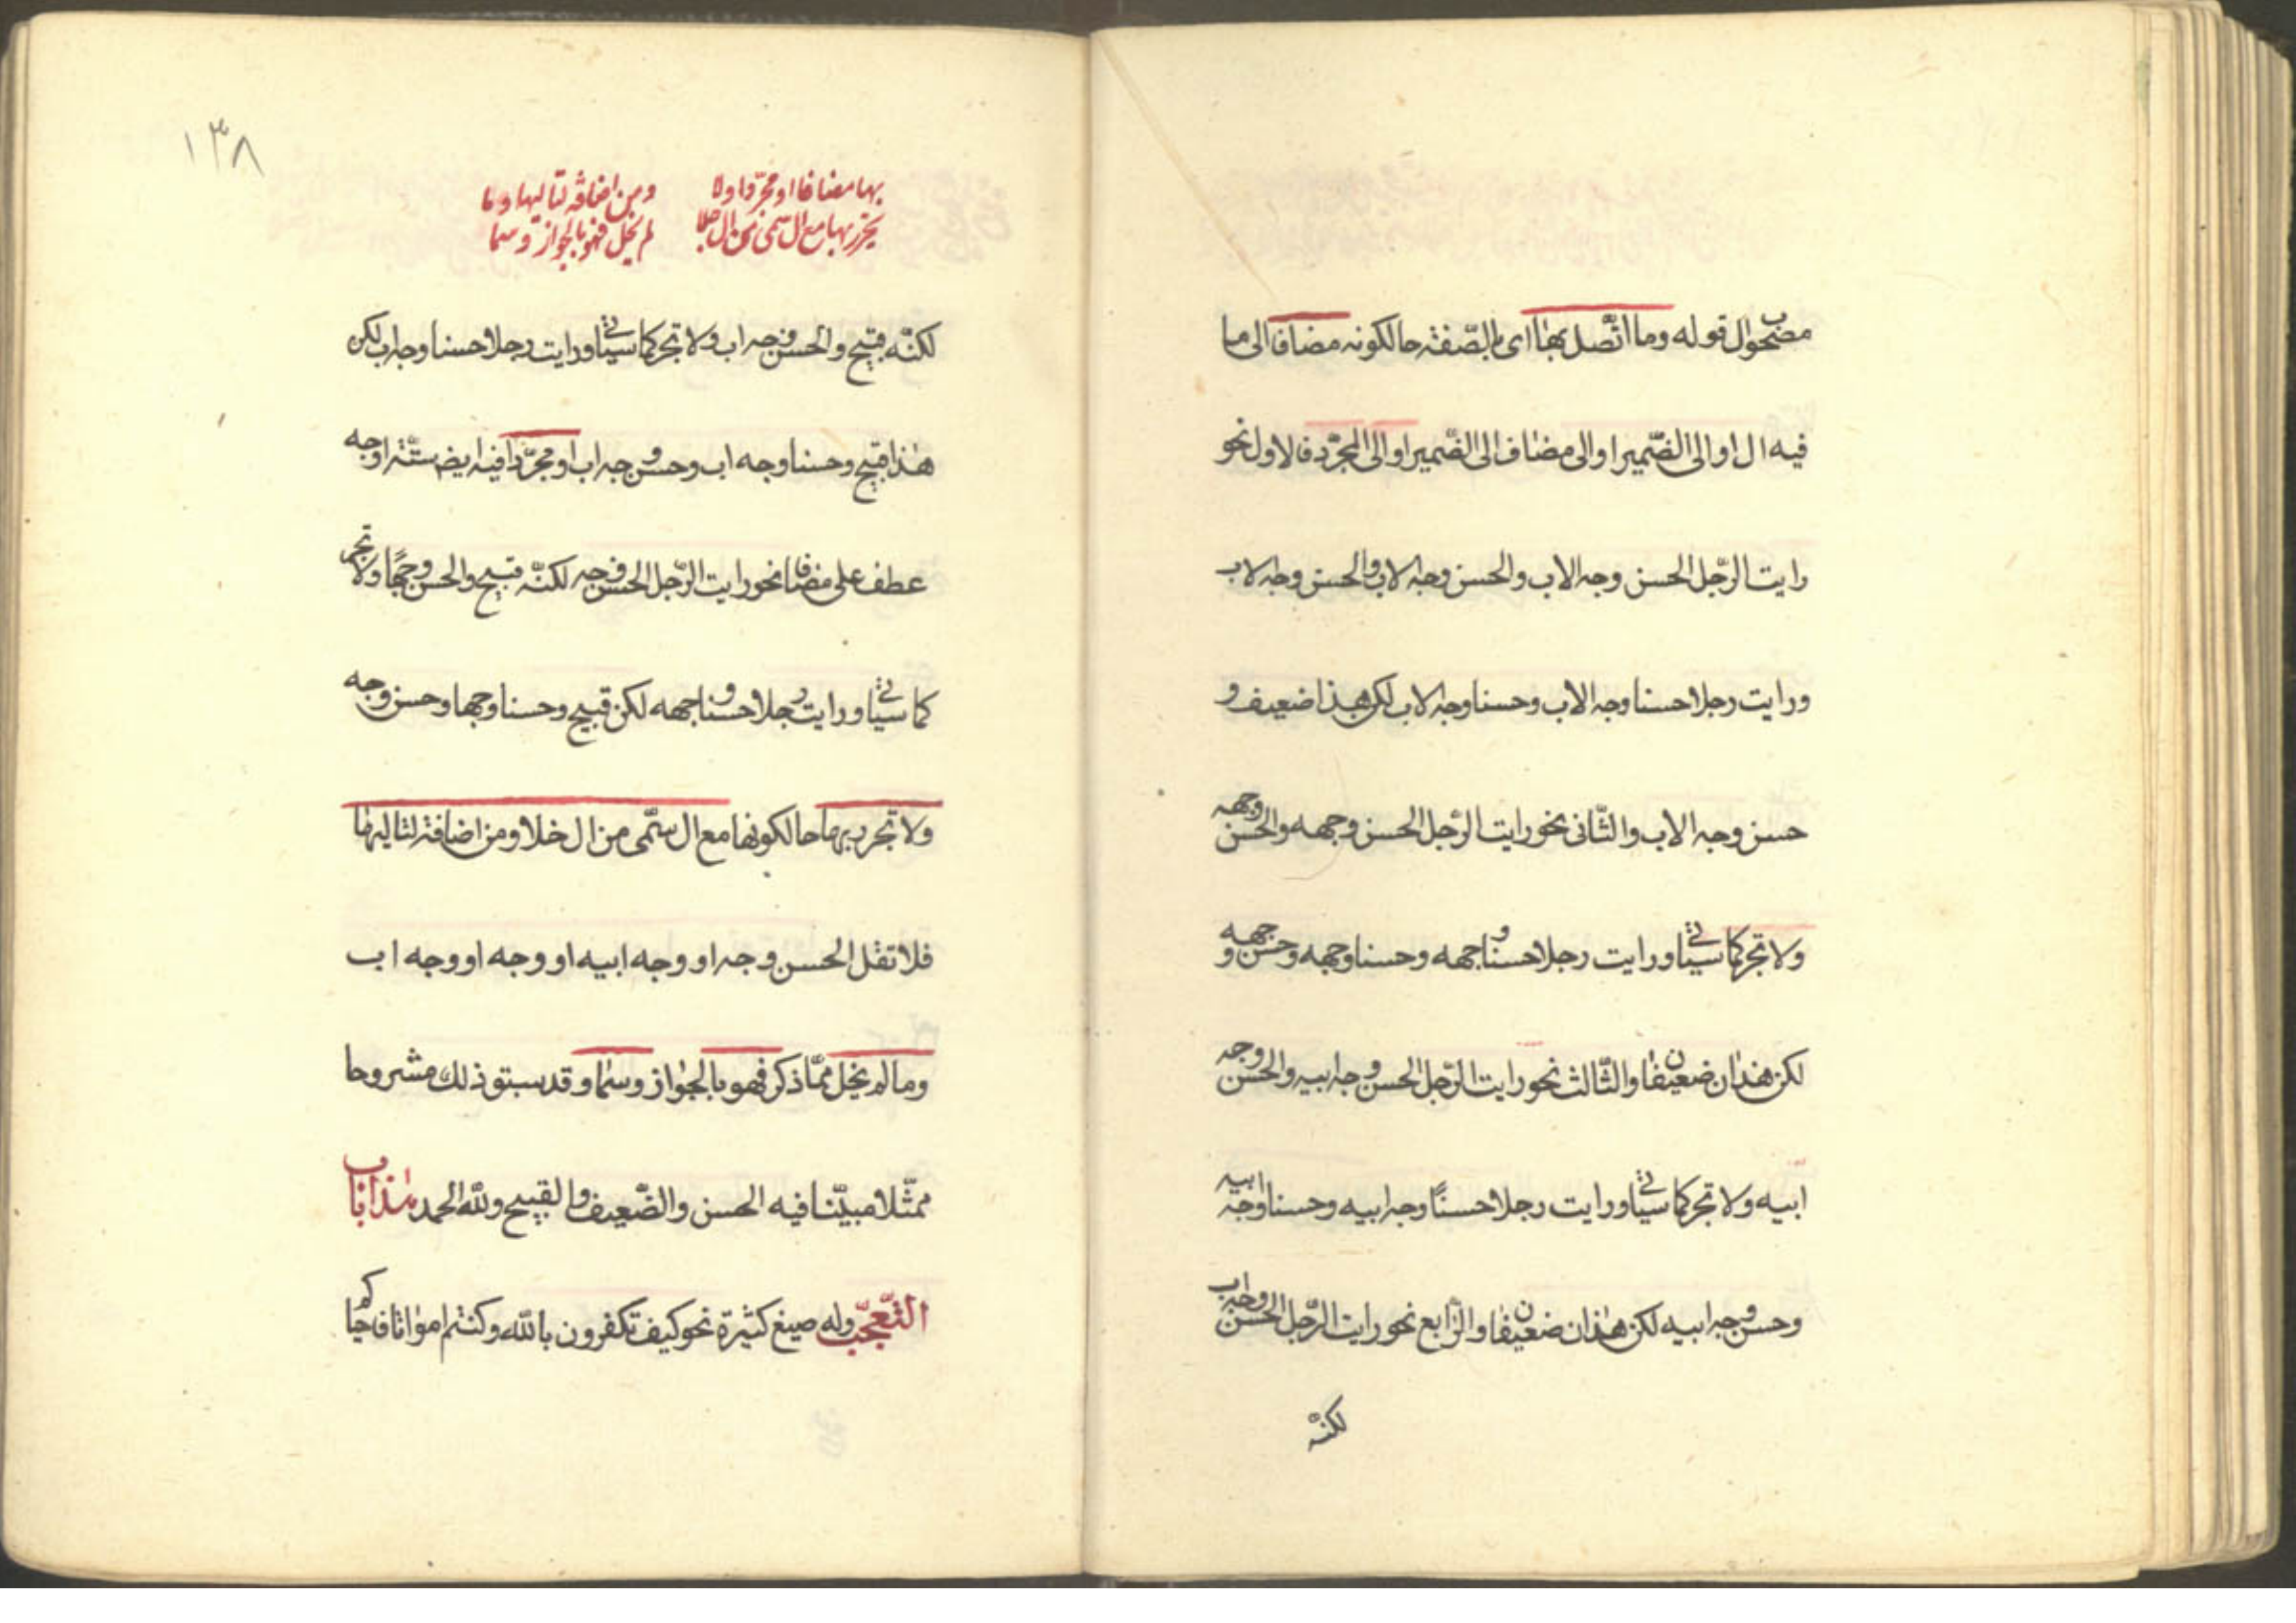 مصحوب ال قوله وما اتّصل بها اى بالصّفة حالكونه مضافا الى ما
فيه ال او الى الضّمير او الى مضاف الى الضّمير او الى المجرّد فالاول نحو
رايت الرّجل الحسن وجه الاب والحسن وجه الاب والحسن وجه الاب
ورايت رجلا حسنا وجه الاب وحسنا وجه الاب لكن هذا ضعيف و
حسن وجه الاب والثّانى نحو رايت الرّجل الحسن وجهه والحسن وجهه
ولا تجر كما سيأتي ورايت رجلا حسنا وجهه وحسنا وجهه وحسن وجهه
لكن هذان ضعيفان والثّالث نحو رايت الرّجل الحسن وجه ابيه والحسن وجه
ابيه ولا تجر كما سيأتي ورايت رجلا حسنًا وجه ابيه وحسنا وجه ابيه
وحسن وجه ابيه لكن هذان ضعيفان والرّابع نحو رايت الرّجل الحسن وجه اب
لكنّه
١٣٨
بها مضافا او مجرّدا ولا
تجرر بها مع ال سمى من ال خلا
ومن اضافة لتاليها وما
لم يخل فهو بالجواز وسما
لكنّه قبيح والحسن وجه اب ولا تجر كما سيأتي ورايت رجلا حسنا وجه اب لكن
هذا قبيح وحسنا وجه اب وحسن وجه اب او مجرّدا فيه ايض ستّة اوجه
عطف على مضافا نحو رايت الرّجل الحسن وجه لكنّه قبيح والحسن وجهًا ولا تجر
كما سيأتي ورايت رجلا حسنا وجهه لكن قبيح وحسنا وجها وحسن وجه
ولا تجرر بها حالكونها مع ال سمّى من ال خلا ومن اضافة لتاليها
فلا تقل الحسن وجه او وجه ابيه او وجه او وجه اب
وما لم يخل ممّا ذكر فهو بالجواز وسما وقد سبق ذلك مشروحا
ممثّلا مبيّنا فيه الحسن والضّعيف والقبيح ولله الحمد هذا باب
التّعجّب وله صيغ كثيرة نحو كيف تكفرون بالله وكنتم امواتا فاحياكم